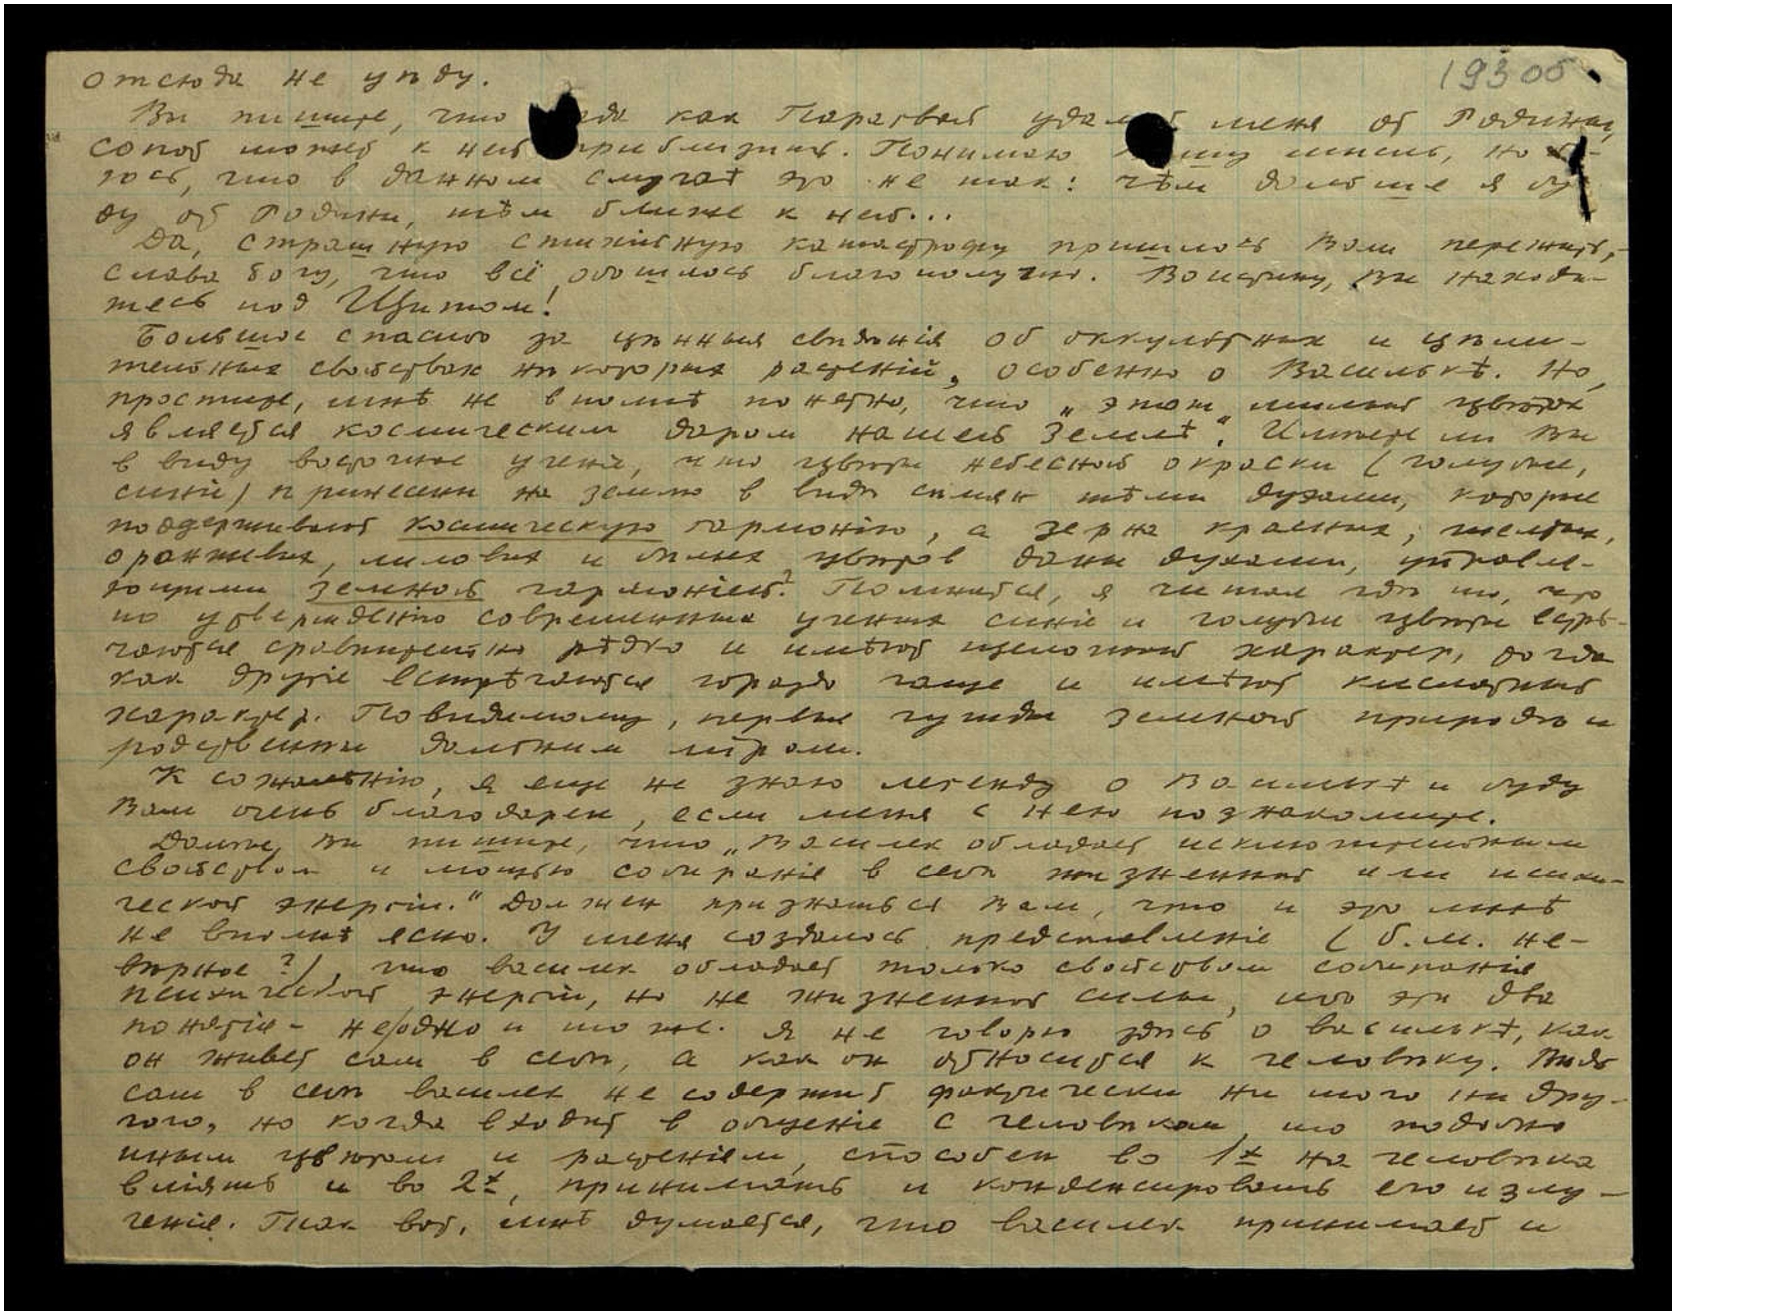 193об
отсюда не уѣду.
Вы пишите, что как Паратвой удалил меня от Родины,
сопоб может к ней приблизить. Понимаю Вашу мысль, но
юсь, что в данном случаѣ это не так: чѣм дольше я бу
ду от Родины, тѣм ближе к ней...
Да, страшную стихійную катастрофу пришлось Вам пережить,-
слава Богу, что всё обошлось благополучно. Воистину, Вы находи-
тесь под Щитом!
Большое спасибо за цѣнныя свѣдѣнія об оккультных и цѣли-
тельных свойствах нѣкоторых растеній, особенно о Василькѣ. Но,
простите, мнѣ не вполнѣ понятно, что „этот милый цвѣток
является космическим даром нашей Землѣ". Имѣете ли Вы
в виду восточное ученіе, что цвѣты небесной окраски (голубые,
синіе) принесены на землю в видѣ сѣмян тѣми духами, которые
поддерживают космическую гармонію, а зерна красных, желтых,
оранжевых, лиловых и бѣлых цвѣтов даны духами, управля-
ющими земной гармоніей? Помнится, я читал гдѣ то, что
по утвержденію современных ученых синіе и голубые цвѣты встрѣ-
чаются сравнительно рѣдко и имѣют щелочный характер, тогда
как другіе встрѣчаются гораздо чаще и имѣют кислотный
характер. Повидимому, первые чужды земной природѣ и
родственны дальним мірам.
К сожалѣнію, я еще не знаю легенду о Василькѣ и буду
Вам очень благодарен, если меня с нею познакомите.
Далѣе, Вы пишите, что „Василек обладает исключительным
свойством и мощью собиранія в себѣ жизненной или психи-
ческой энергіи." Должен признаться Вам, что и это мнѣ
не вполнѣ ясно. У меня создалось представленіе (б.м. не-
вѣрное?), что василек обладает только свойством собиранія
психической энергіи, но не жизненной силы, ибо эти два
понятія - не одно и то же. Я не говорю здѣсь о василькѣ, как
он живет сам в себѣ, а как он относится к человѣку. Вѣдь
сам в себѣ василек не содержит фактически ни того ни дру-
гого, но когда входит в общеніе с человѣком, то подобно
иным цвѣтам и растеніям, способен во 1х на человѣка
вліять и во 2х, принимать и конденсировать его излу-
ченія. Так вот, мнѣ думается, что василек принимает и